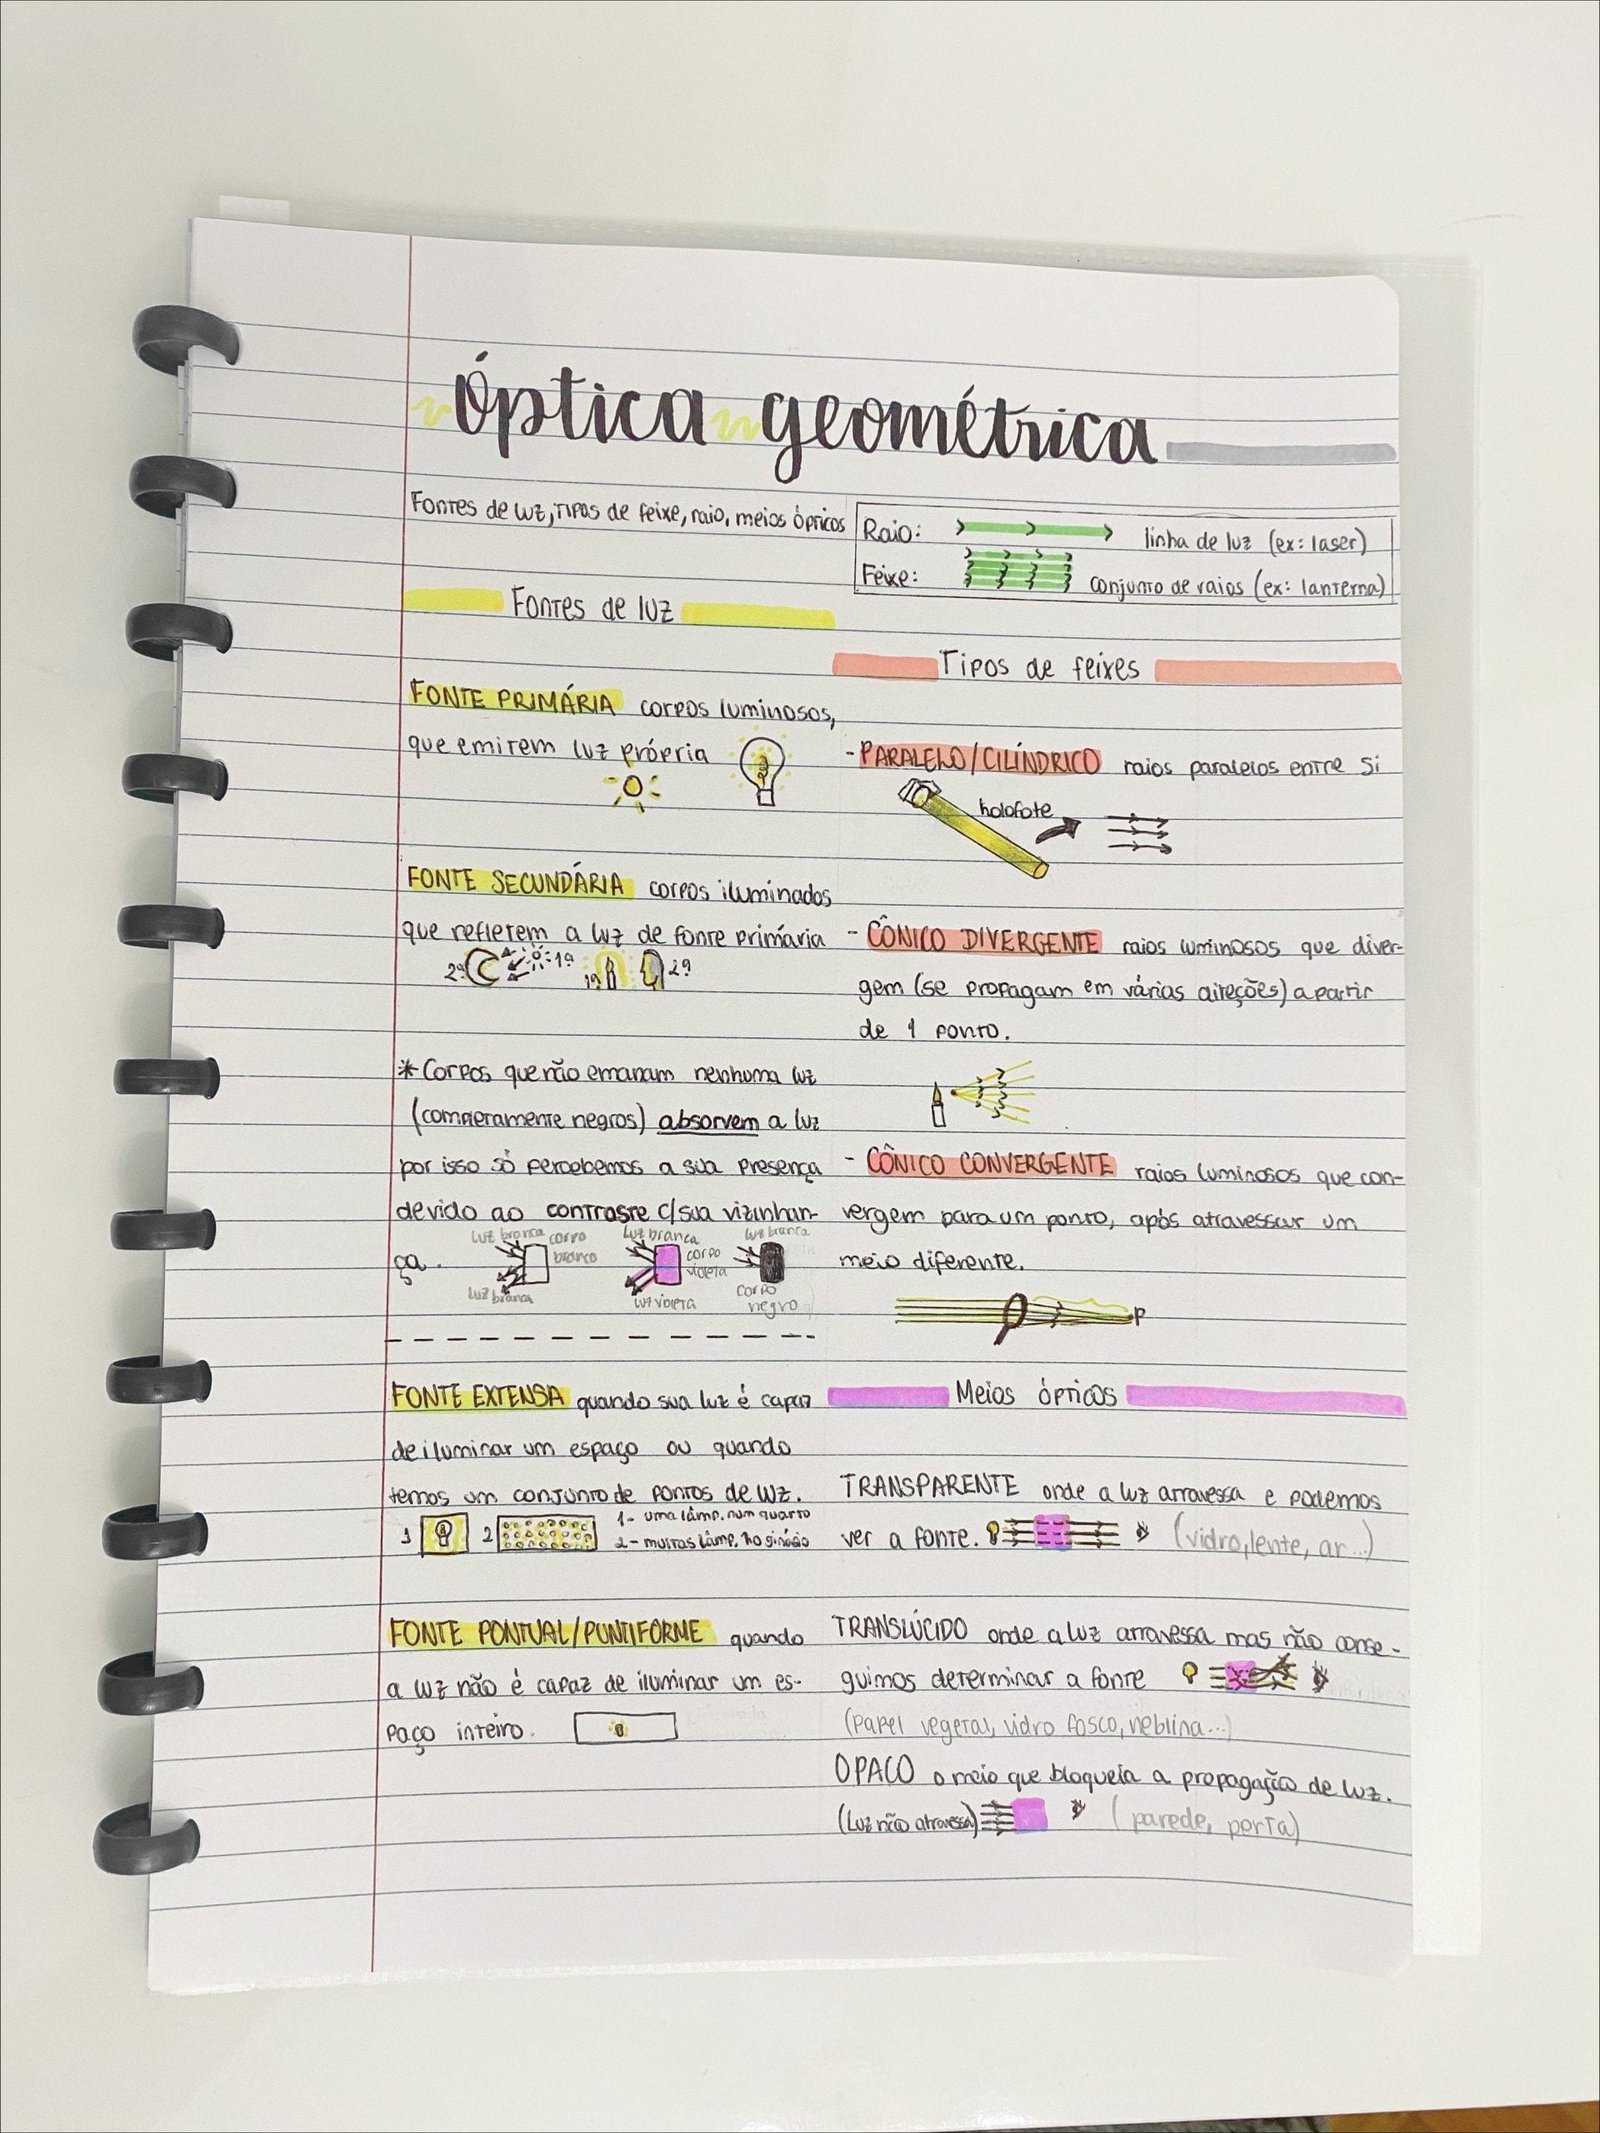 Óptica geométrica
Fontes de luz, tipos de feixe, raio, meios ópticos
Raio: linha de luz (ex: laser)
Feixe: conjunto de raios (ex: lanterna)
Fontes de luz
FONTE PRIMÁRIA corpos luminosos,
que emitem luz própria
FONTE SECUNDÁRIA corpos iluminados
que refletem a luz de fonte primária
2ª 1ª 1ª 2ª
*Corpos que não emanam nenhuma luz
(completamente negros) absorvem a luz
por isso só percebemos a sua presença
devido ao contraste c/sua vizinhan-
ça.
luz branca corpo branco luz branca
luz branca corpo violeta luz violeta
luz branca corpo negro
FONTE EXTENSA quando sua luz é capaz
de iluminar um espaço ou quando
temos um conjunto de pontos de luz.
1 2
1- uma lâmp. num quarto
2- muitas lâmp. no ginásio
FONTE PONTUAL/PUNTIFORME quando
a luz não é capaz de iluminar um es-
paço inteiro.
Tipos de feixes
- PARALELO/CILÍNDRICO raios paralelos entre si
holofote
- CÔNICO DIVERGENTE raios luminosos que diver-
gem (se propagam em várias direções) a partir
de 1 ponto.
- CÔNICO CONVERGENTE raios luminosos que con-
vergem para um ponto, após atravessar um
meio diferente.
P
Meios ópticos
TRANSPARENTE onde a luz atravessa e podemos
ver a fonte. (vidro, lente, ar...)
TRANSLÚCIDO onde a luz atravessa mas não conse-
guimos determinar a fonte
(papel vegetal, vidro fosco, neblina...)
OPACO o meio que bloqueia a propagação de luz.
(Luz não atravessa) (parede, porta)